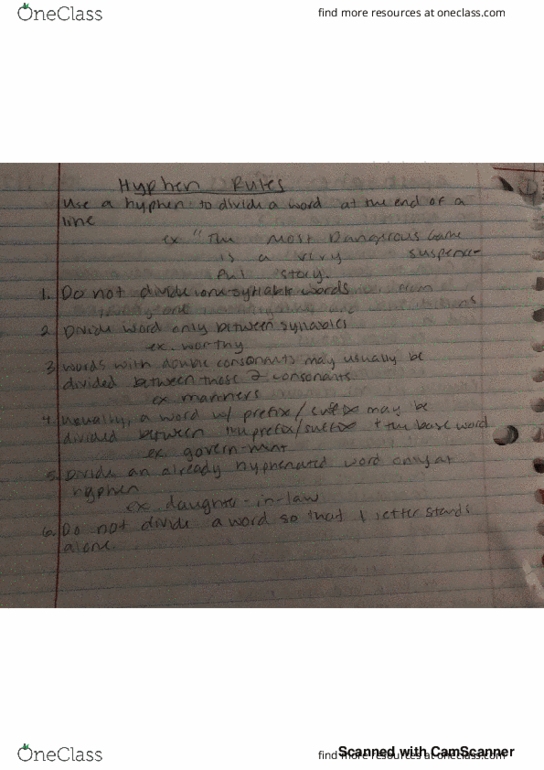 OneClass
find more resources at oneclass.com
Hyphen Rules
Use a hyphen to divide a word at the end of a
line
ex "The Most Dangerous Game
is a very suspense-
ful story.
1. Do not divide one-syllable words
2. Divide word only between syllables
ex. worthy
3. words with double consonants may usually be
divided between those 2 consonants.
ex manners
4. Usually, a word w/ prefix/suffix may be
divided between the prefix/suffix + the base word
ex govern-ment
5. Divide an already hyphenated word only at
hyphen
ex. daughter-in-law
6. Do not divide a word so that 1 letter stands
alone.
OneClass
find more resources at oneclass.com
Scanned with CamScanner